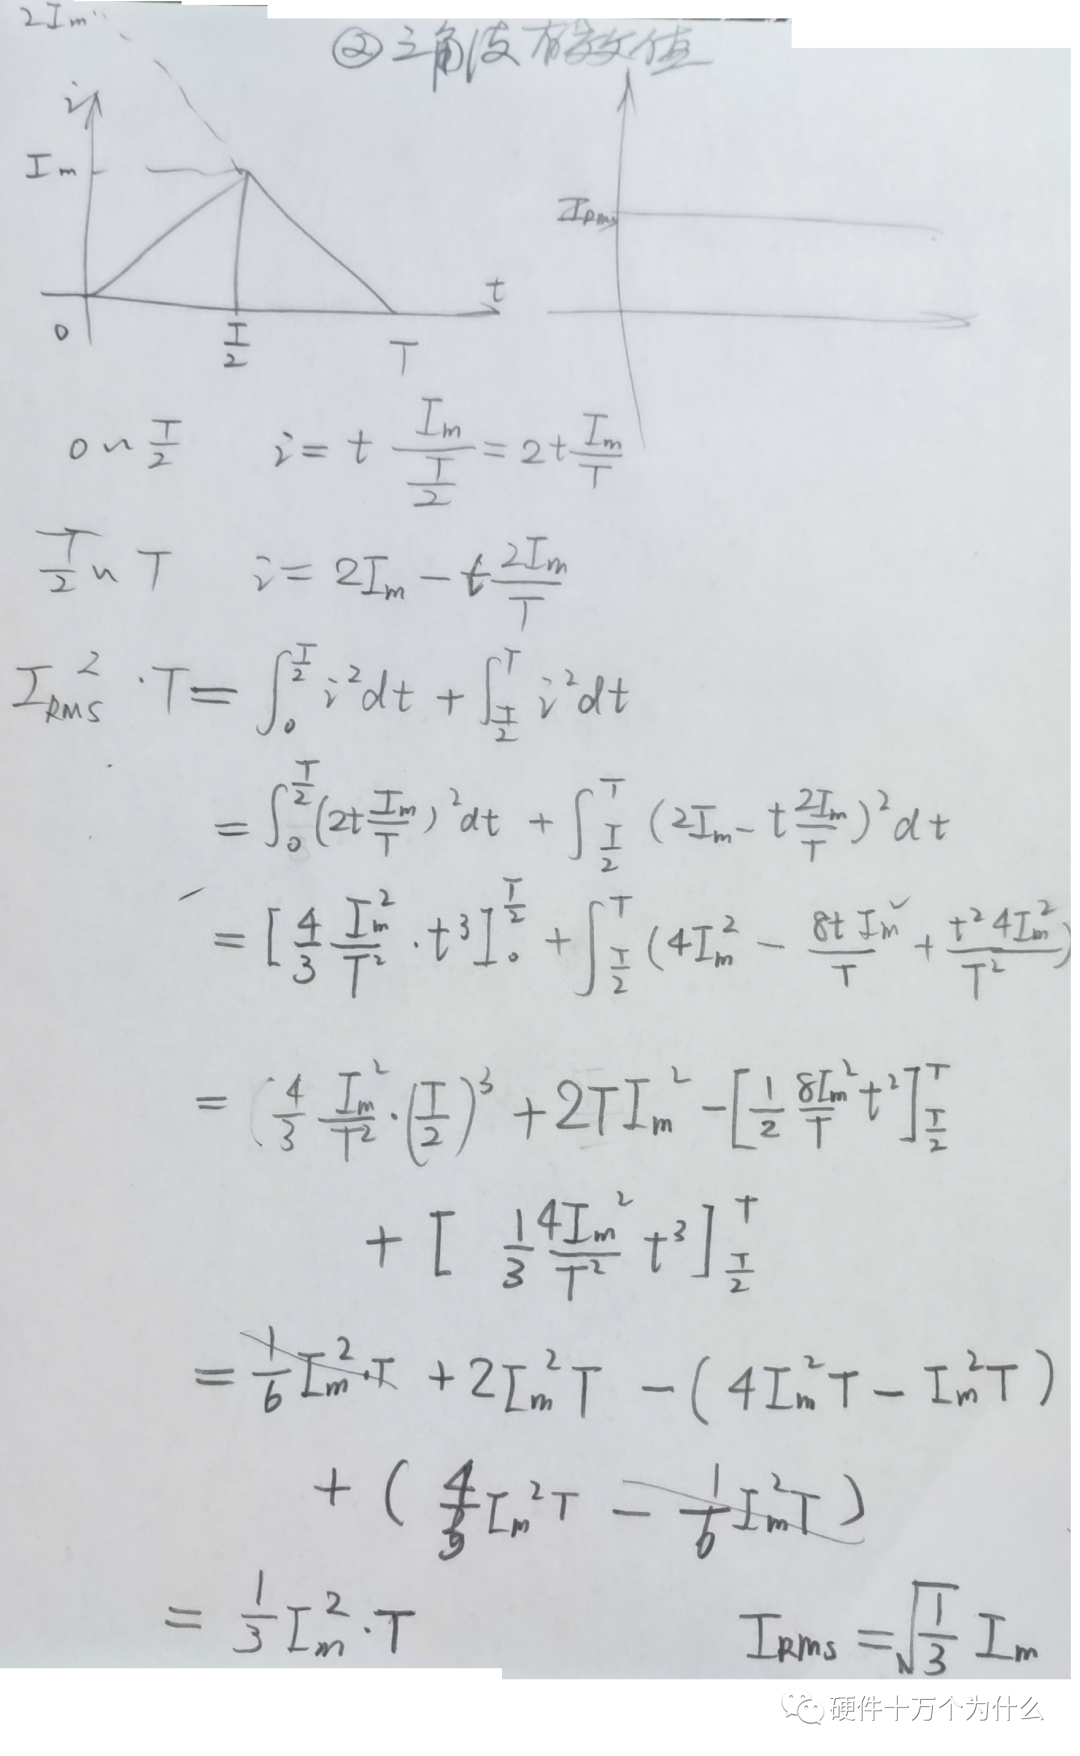 ②三角波有效值
2Im
i
Im
0
T/2
T
t
IRms
0~T/2 i = t Im/(T/2) = 2t Im/T
T/2~T i = 2Im - t 2Im/T
I_RMS² · T = ∫₀^(T/2) i²dt + ∫_(T/2)^T i²dt
= ∫₀^(T/2) (2t Im/T)² dt + ∫_(T/2)^T (2Im - t 2Im/T)² dt
= [4/3 Im²/T² · t³]₀^(T/2) + ∫_(T/2)^T (4Im² - 8t Im²/T + t² 4Im²/T²)
= (4/3 Im²/T² · (T/2)³ + 2T Im² - [1/2 8Im²/T t²]_(T/2)^T
+ [1/3 4Im²/T² t³]_(T/2)^T
= 1/6 Im² · T + 2Im² T - (4Im² T - Im² T)
+ (4/3 Im² T - 1/6 Im² T)
= 1/3 Im² · T I_RMS = √(1/3) Im
硬件十万个为什么